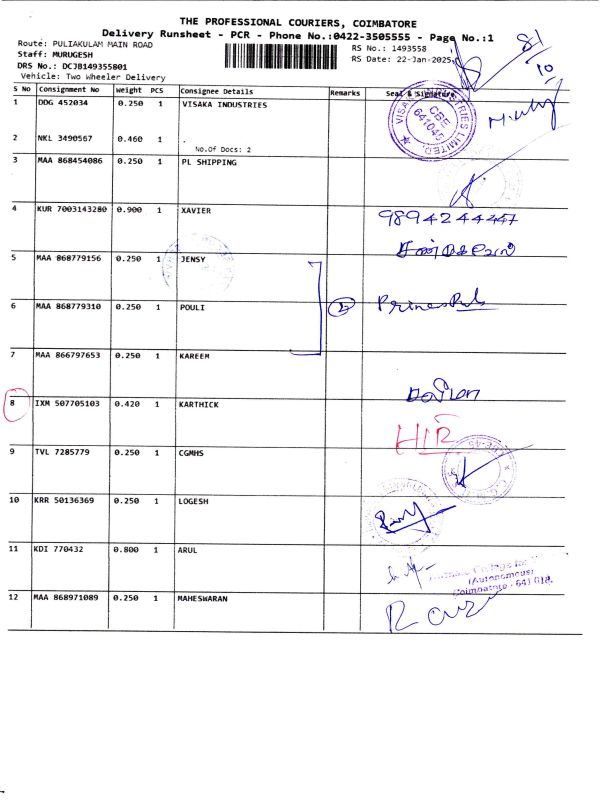 THE PROFESSIONAL COURIERS, COIMBATORE
Delivery Runsheet - PCR - Phone No.:0422-3505555 - Page No.:1
Route: PULIAKULAM MAIN ROAD
RS No.: 1493558
Staff: MURUGESH
RS Date: 22-Jan-2025
DRS No.: DCJB149355801
Vehicle: Two Wheeler Delivery
S No Consignment No Weight PCS Consignee Details Remarks Seal & Signature
1 DDG 452034 0.250 1 VISAKA INDUSTRIES
VISAKA INDUSTRIES LIMITED.
CBE
641045
2 NKL 3490567 0.460 1 .
No.Of Docs: 2
3 MAA 868454086 0.250 1 PL SHIPPING
4 KUR 7003143280 0.900 1 XAVIER
5 MAA 868779156 0.250 1 JENSY
6 MAA 868779310 0.250 1 POULI
2
7 MAA 866797653 0.250 1 KAREEM
8 IXM 507705103 0.420 1 KARTHICK
9 TVL 7285779 0.250 1 CGMHS
10 KRR 50136369 0.250 1 LOGESH
11 KDI 770432 0.800 1 ARUL
(Autonomous)
Coimbatore - 641 018.
12 MAA 868971089 0.250 1 MAHESWARAN